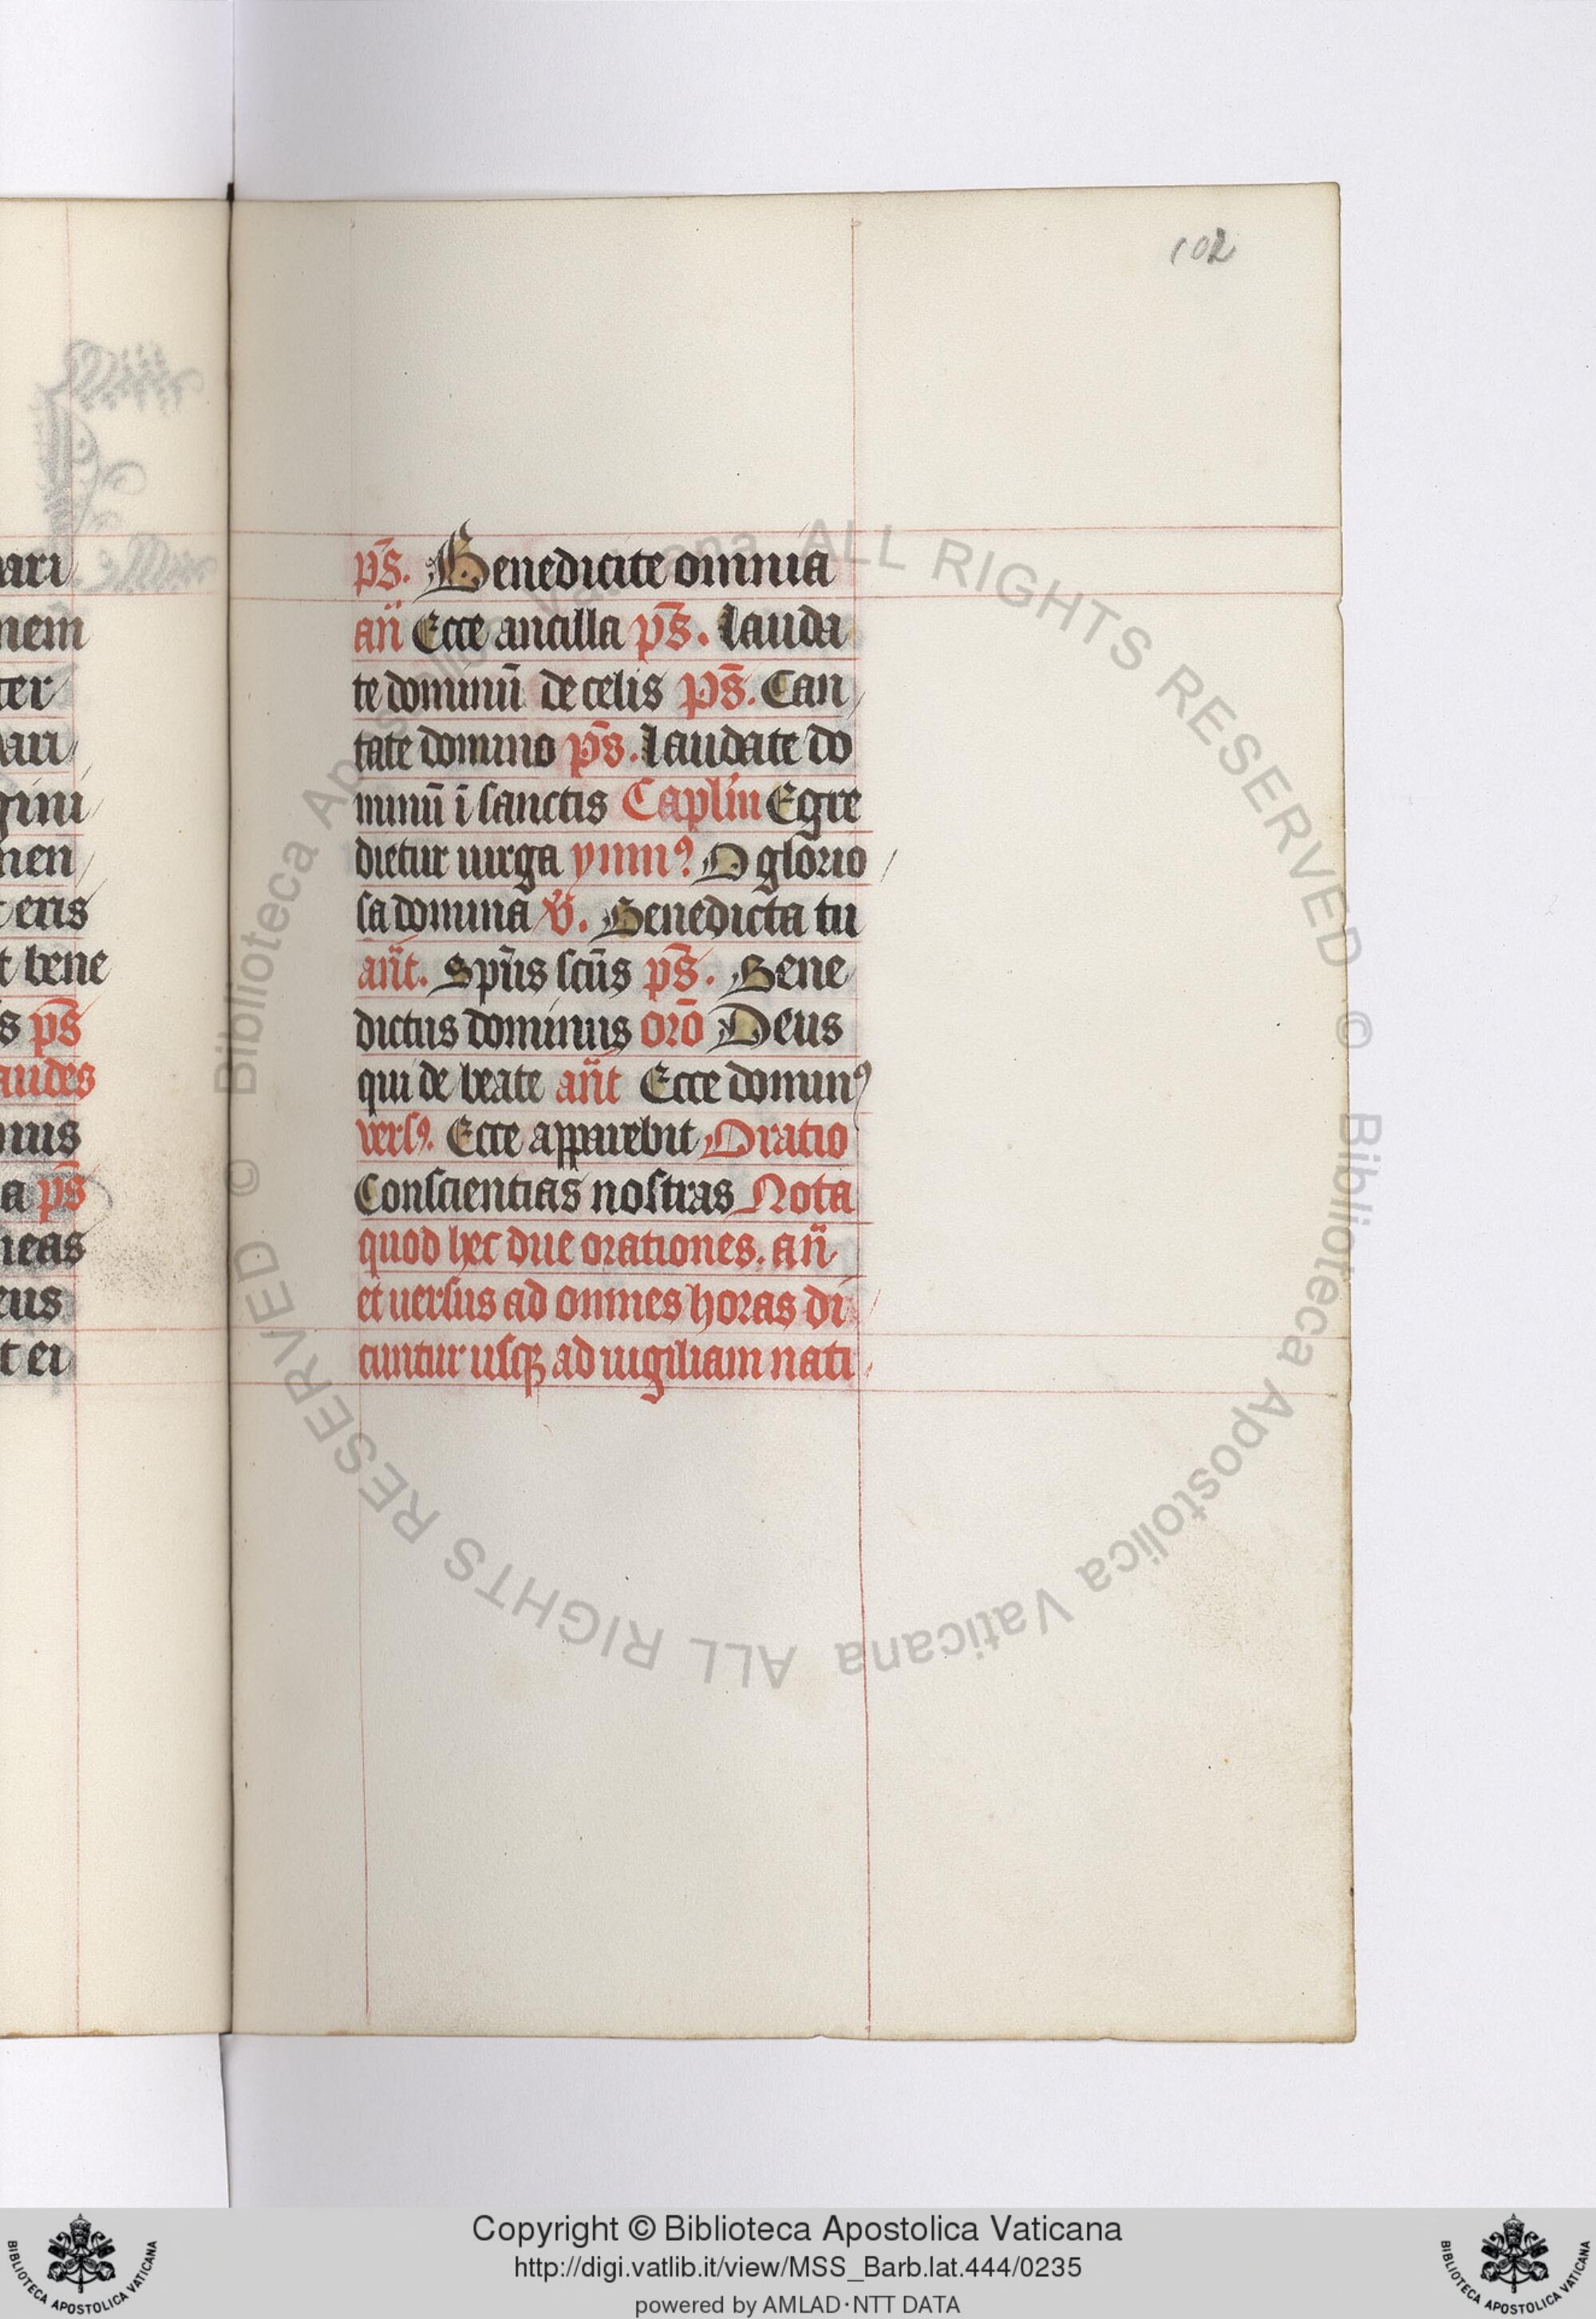 102
ari
nem
ter
ari
gini
men
t eris
t bene
s ps̄
audes
nus
a ps̄
neas
eus
t ei
ps̄. Benedicite omnia
an̄ Ecce ancilla ps̄. Lauda
te dominū de celis ps̄. Can
tate domino ps̄. Laudate do
minū ī sanctis Caplm̄ Egre
dietur uirga ymnꝰ O glorio
sa domina v̄. Benedicta tu
an̄t. Spūs scūs ps̄. Bene
dictus dominus orō Deus
qui de beate an̄t Ecce dominꝰ
versꝰ. Ecce apparebit Oratio
Conscientias nostras Nota
quod hec due orationes. an̄
et uersus ad omnes horas di
cuntur usqꝫ ad uigiliam nati
© Biblioteca Apostolica Vaticana ALL RIGHTS RESERVED
© Biblioteca Apostolica Vaticana ALL RIGHTS RESERVED
Copyright © Biblioteca Apostolica Vaticana
http://digi.vatlib.it/view/MSS_Barb.lat.444/0235
powered by AMLAD·NTT DATA
BIBLIOTECA APOSTOLICA VATICANA
BIBLIOTECA APOSTOLICA VATICANA